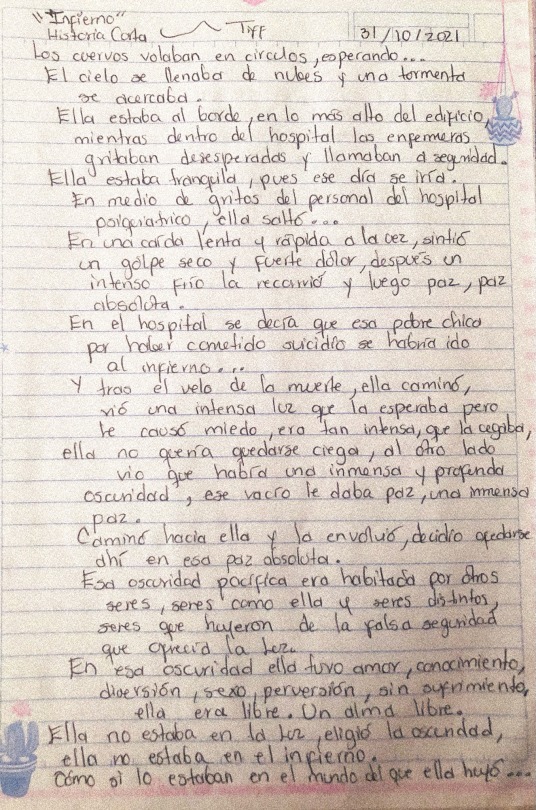 "Infierno"
Historia Corta Tiff 31/10/2021
Los cuervos volaban en círculos, esperando...
El cielo se llenaba de nubes y una tormenta
se acercaba.
Ella estaba al borde, en lo más alto del edificio,
mientras dentro del hospital las enfermeras
gritaban desesperadas y llamaban a seguridad.
Ella estaba tranquila, pues ese día se iría.
En medio de gritos del personal del hospital
psiquiatrico, ella saltó...
En una caída lenta y rápida a la vez, sintió
un golpe seco y fuerte dolor, después un
intenso frío la recorrió y luego paz, paz
absoluta.
En el hospital se decía que esa pobre chica
por haber cometido suicidio se habría ido
al infierno...
Y tras el velo de la muerte, ella caminó,
vió una intensa luz que la esperaba pero
le causó miedo, era tan intensa, que la cegaba,
ella no quería quedarse ciega, al otro lado
vio que había una inmensa y profunda
oscuridad, ese vacío le daba paz, una inmensa
paz.
Caminó hacia ella y la envolvió, decidió quedarse
ahí en esa paz absoluta.
Esa oscuridad pacífica era habitada por otros
seres, seres como ella y seres distintos,
seres que huyeron de la falsa seguridad
que ofrecía la luz.
En esa oscuridad ella tuvo amor, conocimiento,
diversión, sexo, perversión, sin sufrimiento,
ella era libre. Un alma libre.
Ella no estaba en la luz, eligió la oscuridad,
ella no estaba en el infierno.
Cómo si lo estaban en el mundo del que ella huyó...